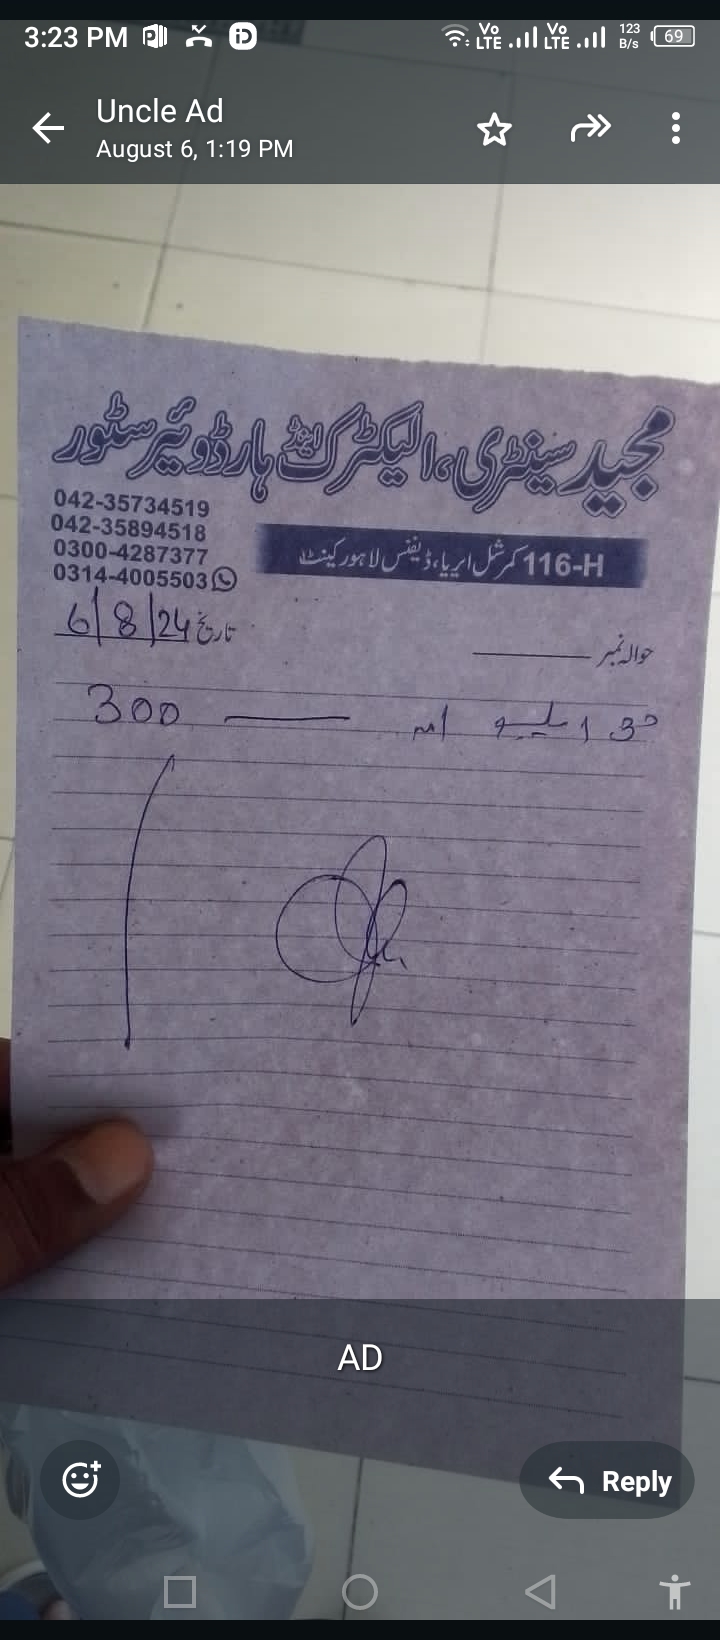 3:23 PM
Vo LTE Vo LTE 123 B/s 69
Uncle Ad
August 6, 1:19 PM
مجید سینٹری، الیکٹرک اینڈ ہارڈوئیر سٹور
042-35734519
042-35894518
0300-4287377
0314-4005503
116-H کمرشل ایریا، ڈیفنس لاہور کینٹ
تاریخ 6/8/24
حوالہ نمبر
300
AD
Reply